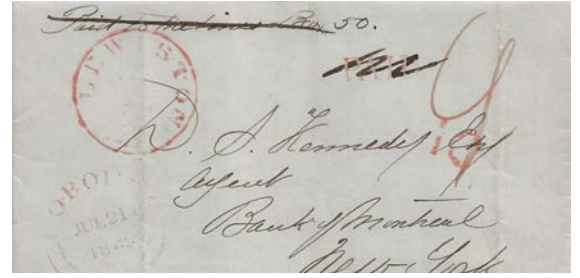 Paid to the lines Box 50.
LEWISTON
10
D. S. Kennedy Esq
Agent
Bank of Montreal
New York
JUL 21